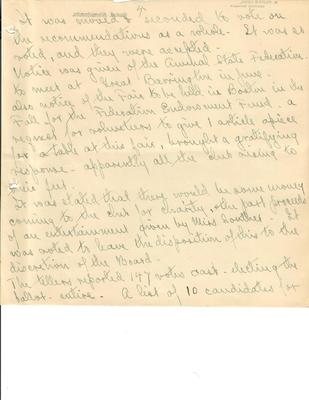 4
It was moved & seconded to vote on
the recommendations as a whole. It was so
voted, and they were accepted.
Notice was given of the Annual State Federation
to meet at Great Barrington in June.
also notice of the Fair to be held in Boston in the
Fall for the Federation Endowment Fund. a
request for volunteers to give 1 article apiece
for a table at this fair, brought a gratifying
response - apparently all the club rising to
their feet.
It was stated that there would be some money
coming to the club for charity, the part proceeds
of an entertainment given by Miss. It
was voted to leave the disposition of this to the
discretion of the Board.
The tellers reported 147 votes cast - electing the
ballot entire. A list of 10 candidates for